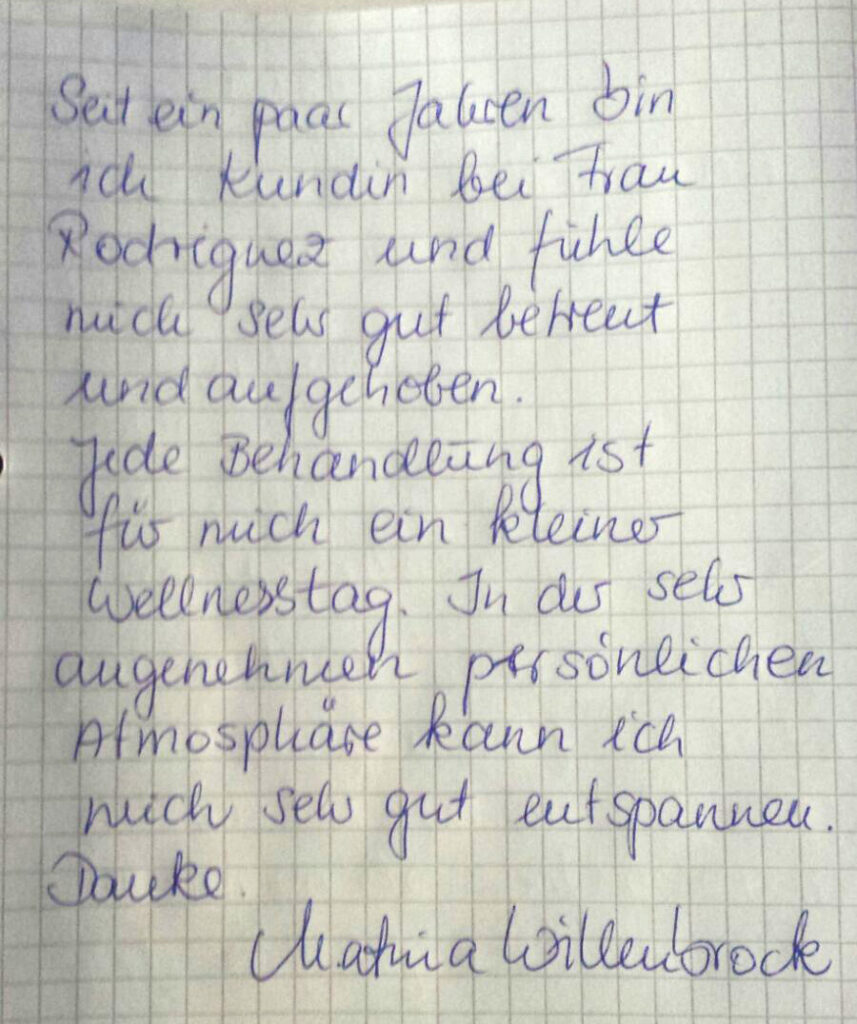 Seit ein paar Jahren bin
ich Kundin bei Frau
Rodriguez und fühle
mich sehr gut betreut
und aufgehoben.
Jede Behandlung ist
für mich ein kleiner
Wellnesstag. In der sehr
angenehmen persönlichen
Atmosphäre kann ich
mich sehr gut entspannen.
Danke.
Willenbrock